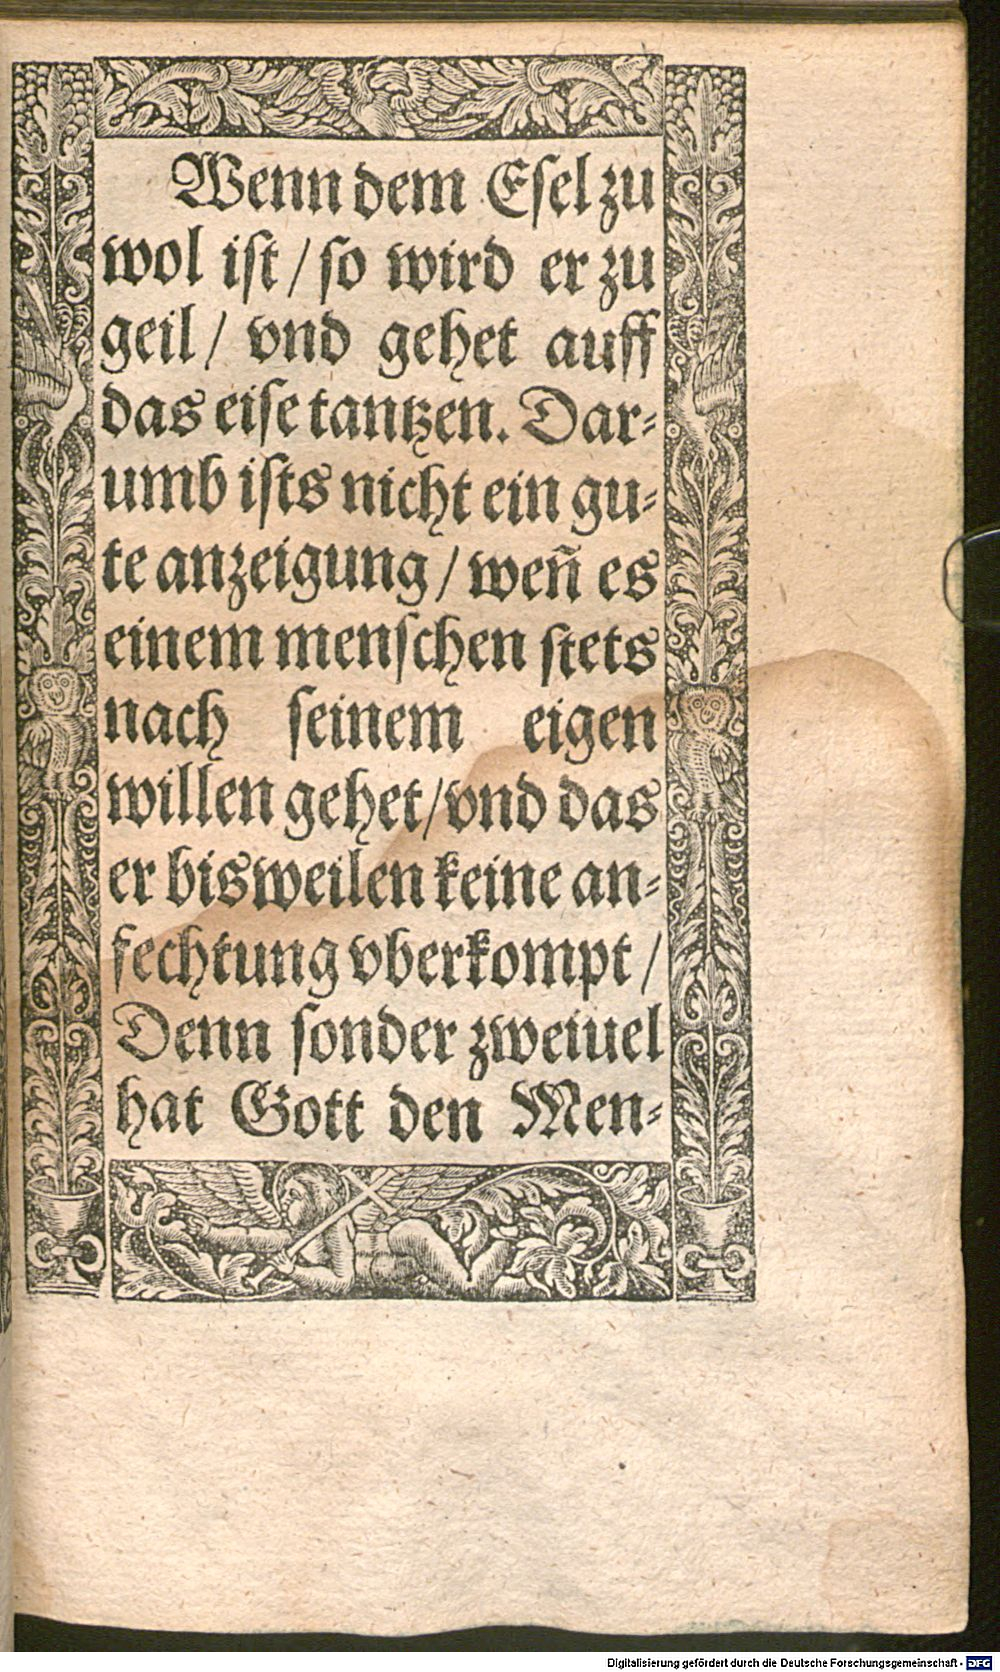 Wenn dem Esel zu
wol ist / so wird er zu
geil / vnd gehet auff
das eise tantzen. Dar⸗
umb ists nicht ein gu⸗
te anzeigung / weñ es
einem menschen stets
nach seinem eigen
willen gehet / vnd das
er bisweilen keine an⸗
fechtung vberkompt /
Denn sonder zweiuel
hat Gott den Men⸗
Digitalisierung gefördert durch die Deutsche Forschungsgemeinschaft - DFG